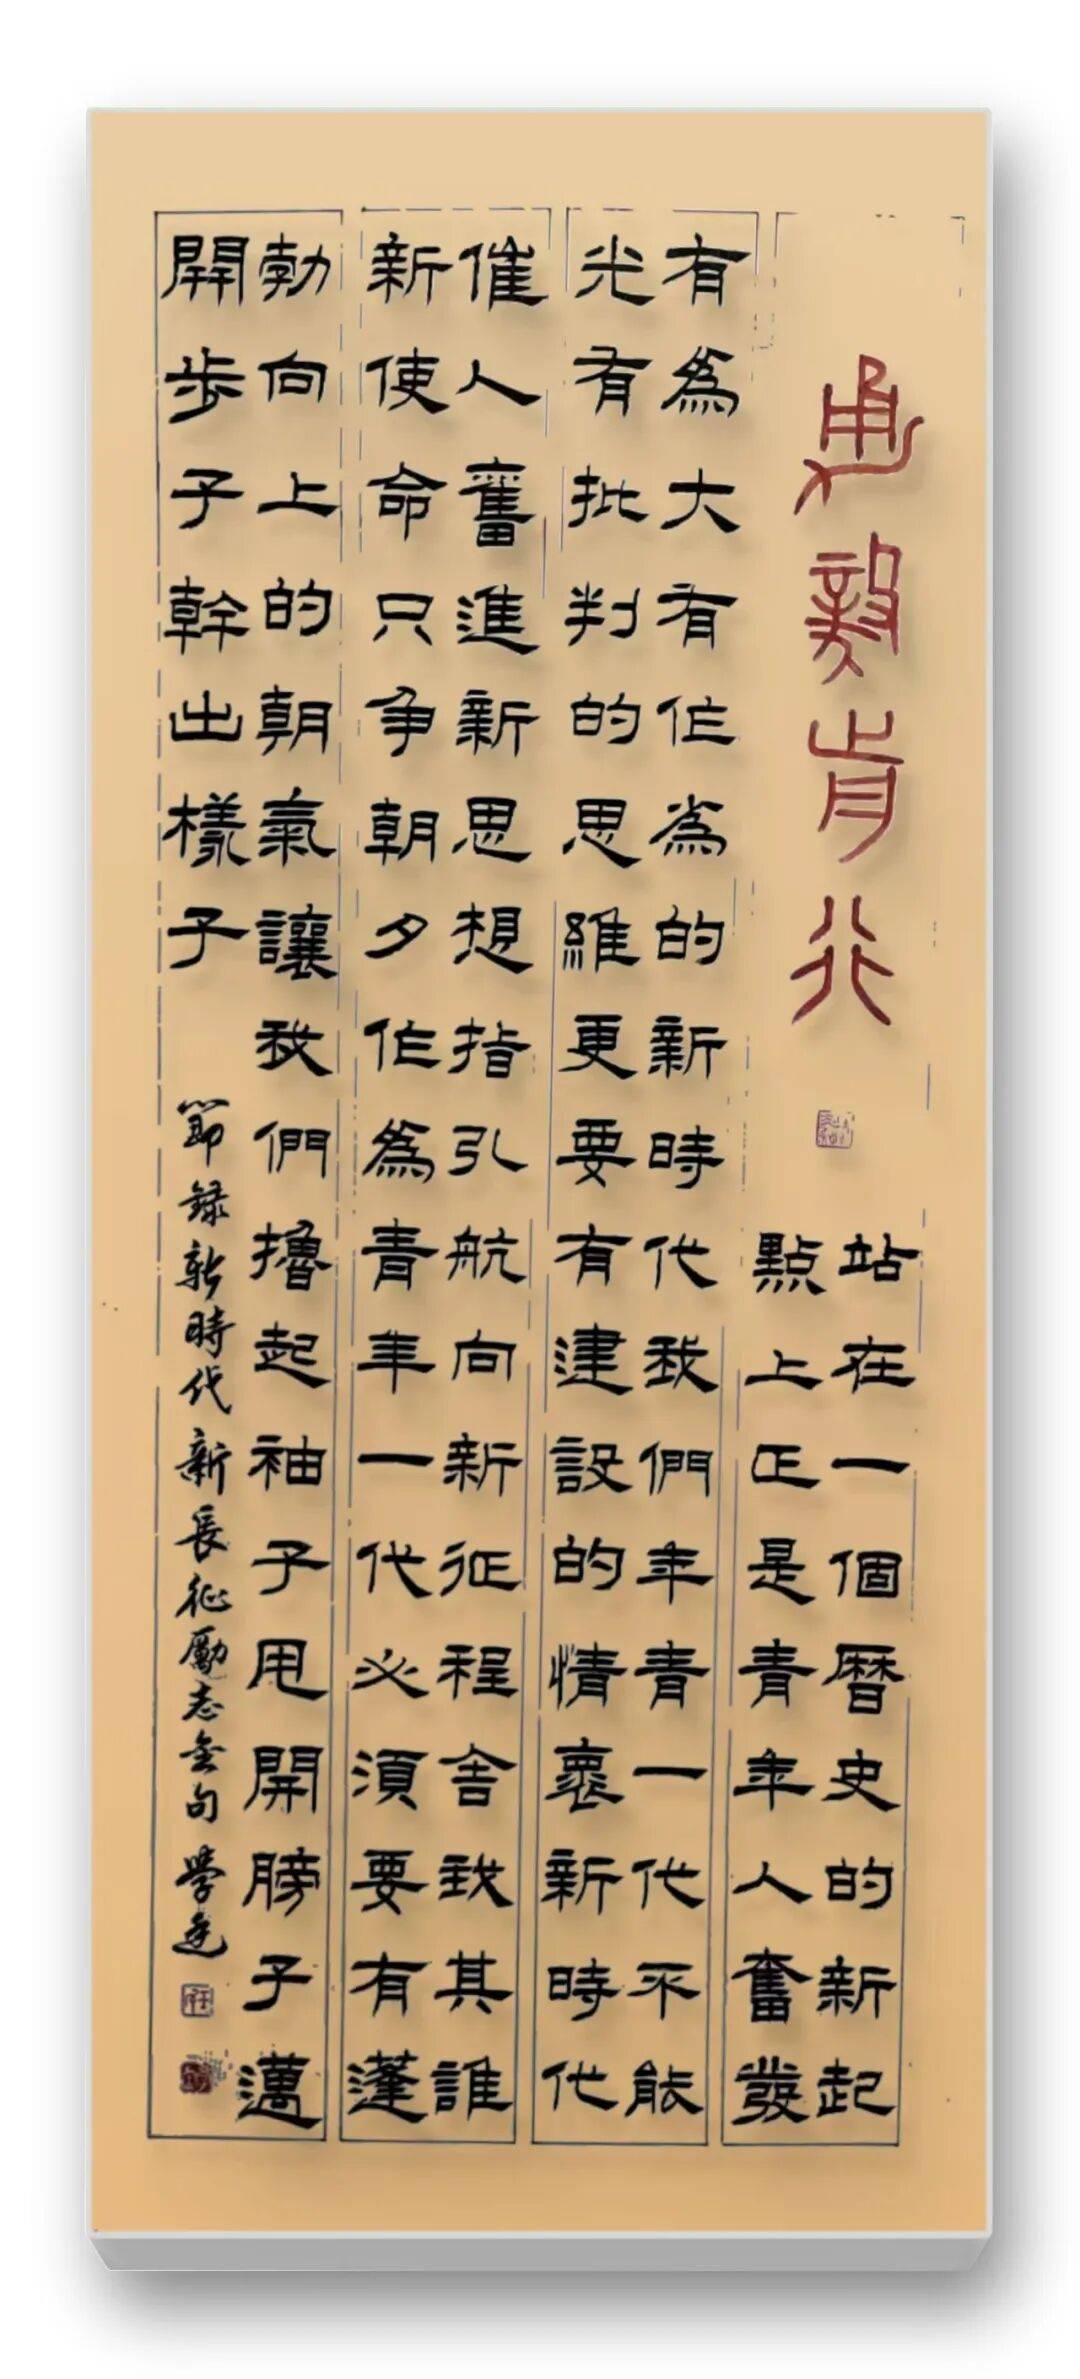 勇毅前行
站在一個曆史的新起
點上正是青年人奮發
有為大有作為的新時代我們年青一代不能
光有批判的思維更要有建設的情褱新時代
催人奮進新思想指引航向新征程舍我其誰
新使命只争朝夕作為青年一代必須要有蓬
勃向上的朝氣讓我們擼起袖子甩開膀子邁
開步子幹出樣子
節録新時代新長征勵志金句學